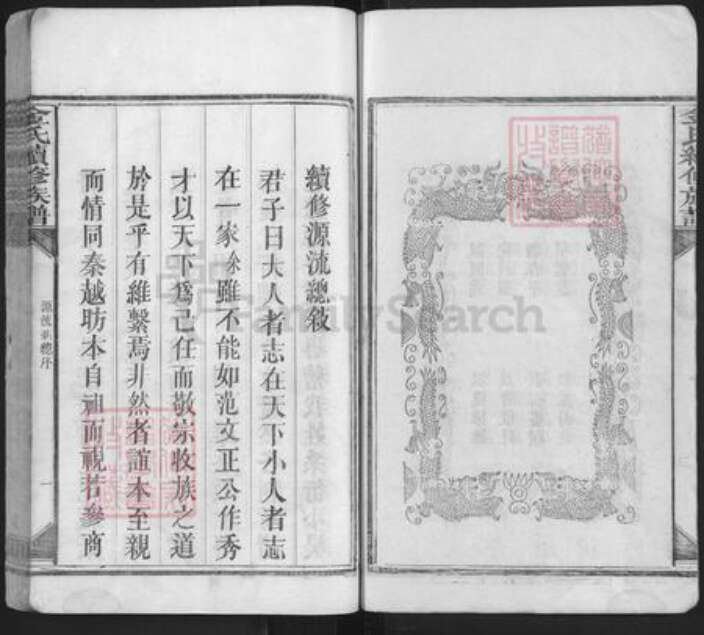 金氏續修族譜
續修源流總敘
君子曰大人者志在天下小人者志
在一家余雖不能如范文正公作秀
才以天下為己任而敬宗收族之道
於是乎有維繫焉非然者誼本至親
而情同秦越昉本自祖而視若參商
金氏續修族譜
一
FamilySearch